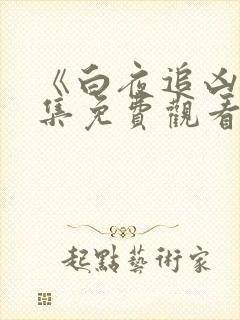 《白夜追凶
集免費觀看
起點藝術家